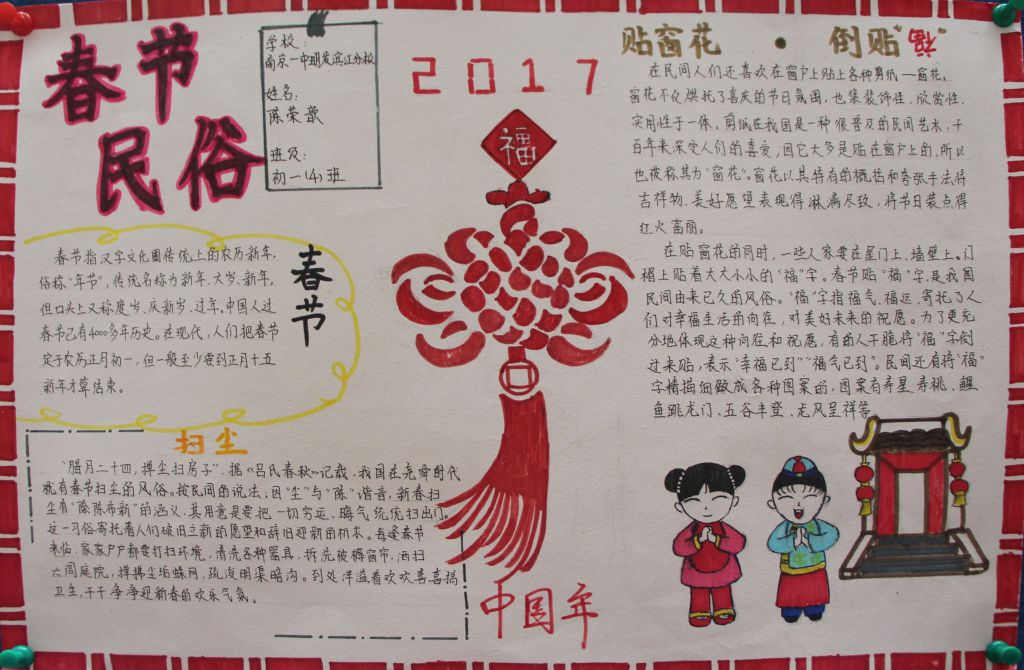 春节
民俗
学校：
南京一中明发滨江分校
姓名：
陈荣歆
班级：
初一(4)班
春节
春节指汉字文化圈传统上的农历新年，
俗称“年节”，传统名称为新年、大岁、新年，
但口头上又称度岁、庆新岁、过年。中国人过
春节已有4000多年历史。在现代，人们把春节
定于农历正月初一，但一般至少要到正月十五
新年才算结束。
扫尘
“腊月二十四，掸尘扫房子”。据《吕氏春秋》记载，我国在尧舜时代
就有春节扫尘的风俗。按民间的说法：因“尘”与“陈”谐音，新春扫
尘有“除陈布新”的涵义，其用意是要把一切穷运、晦气统统扫出门。
这一习俗寄托着人们破旧立新的愿望和辞旧迎新的祈求。每逢春节
来临，家家户户都要打扫环境，清洗各种器具，拆洗被褥窗帘，洒扫
六闾庭院，掸拂尘垢蛛网，疏浚明渠暗沟。到处洋溢着欢欢喜喜搞
卫生，干干净净迎新春的欢乐气氛。
2017
福
中国年
贴窗花 · 倒贴“福”
在民间人们还喜欢在窗户上贴上各种剪纸—窗花。
窗花不仅烘托了喜庆的节日氛围，也集装饰性、欣赏性、
实用性于一体。剪纸在我国是一种很普及的民间艺术，千
百年来深受人们的喜爱，因它大多是贴在窗户上的，所以
也被称其为“窗花”。窗花以其特有的概括和夸张手法将
吉祥物、美好愿望表现得淋漓尽致，将节日装点得
红火富丽。
在贴窗花的同时，一些人家要在屋门上、墙壁上、门
楣上贴着大大小小的“福”字。春节贴“福”字，是我国
民间由来已久的风俗。“福”字指福气、福运，寄托了人
们对幸福生活的向往，对美好未来的祝愿。为了更充
分地体现这种向往和祝愿，有的人干脆将“福”字倒
过来贴，表示“幸福已到”“福气已到”。民间还有将“福”
字精描细做成各种图案的，图案有寿星、寿桃、鲤
鱼跳龙门、五谷丰登、龙凤呈祥等。